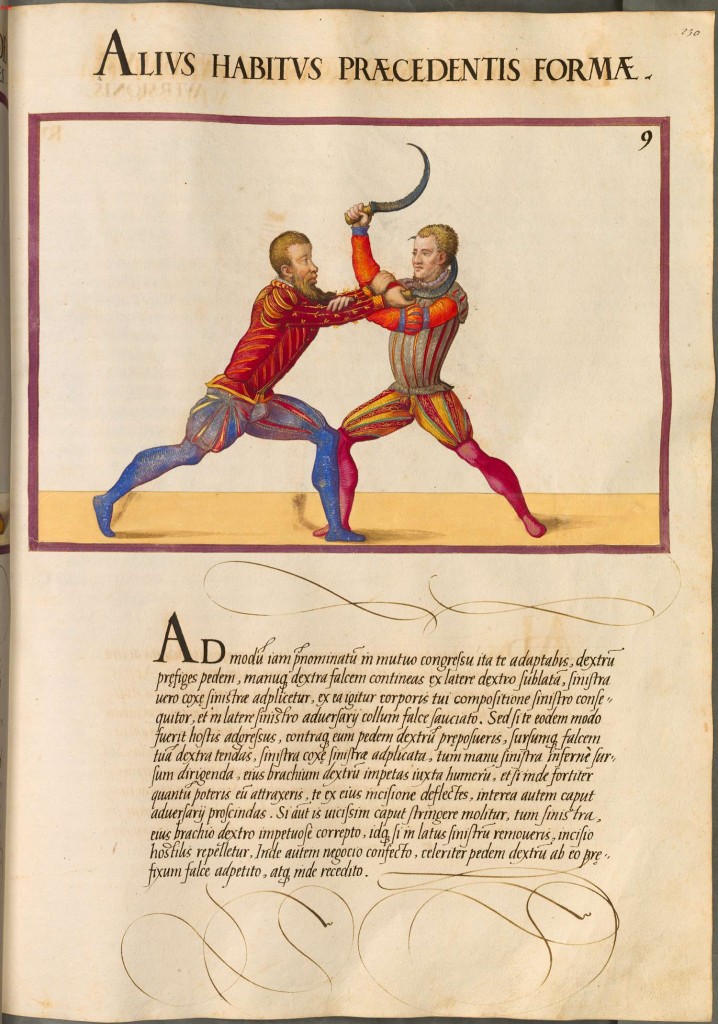 230
ALIVS HABITVS PRÆCEDENTIS FORMÆ.
9
AD modũ iam p̃nominatũ in mutuo congressu ita te adaptabis, dextrũ
prefiges pedem, manuq̃ dextra falcem contineas ex latere dextro sublatã, sinistra
uero coxę sinistræ adplicetur, ex ea igitur corporis tui compositione sinistro conse⸗
quitor, et in latere sinistro adversarij collum falce sauciato. Sed si te eodem modo
fuerit hostis adgressus, contraq̃ eum pedem dextrũ preposueris, sursumq̃ falcem
tuã dextra tendas, sinistra coxę sinistræ adplicata, tum manu sinistra infernè sur⸗
sum dirigenda, eius brachium dextrũ impetas iuxta humerũ, et si inde fortiter
quantũ poteris eũ attraxeris, te ex eius incisione deflectes, interea autem caput
adversarij proscindas. Si aũt is uicissim caput stringere molitur, tum sinistra,
eius brachio dextro impetuose correpto, idq̃ si in latus sinistrũ removeris, incisio
hostilis repelletur, Inde autem negocio confecto, celeriter pedem dextrũ ab eo prę⸗
fixum falce adpetito, atq̃ inde recedito.